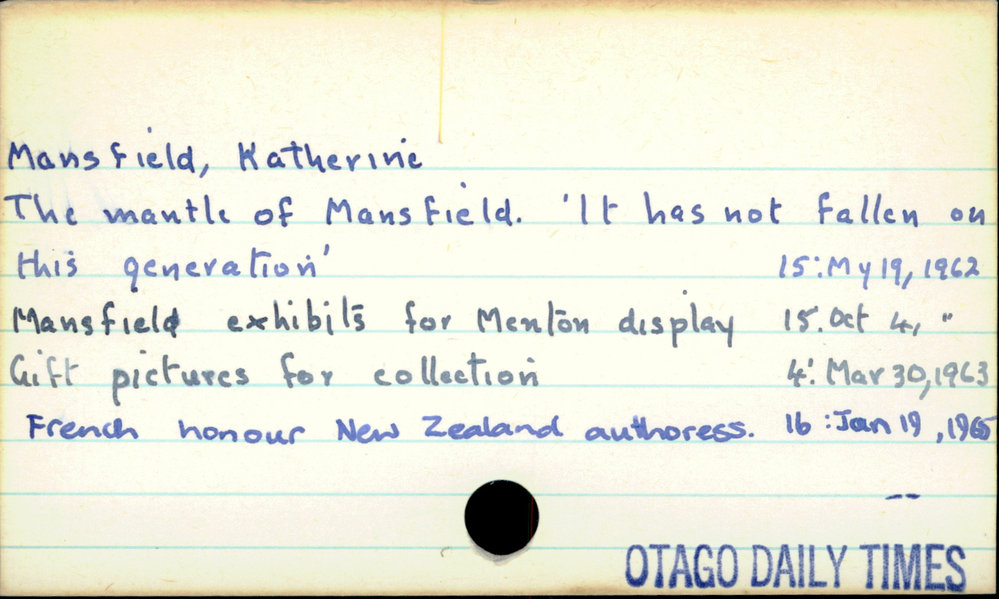 Mansfield, Katherine
The mantle of Mansfield. 'It has not fallen on
this generation' 15:My 19, 1962
Mansfield exhibits for Menton display 15.Oct 4, "
Gift pictures for collection 4: Mar 30, 1963
French honour New Zealand authoress. 16:Jan 19, 1965
--
OTAGO DAILY TIMES